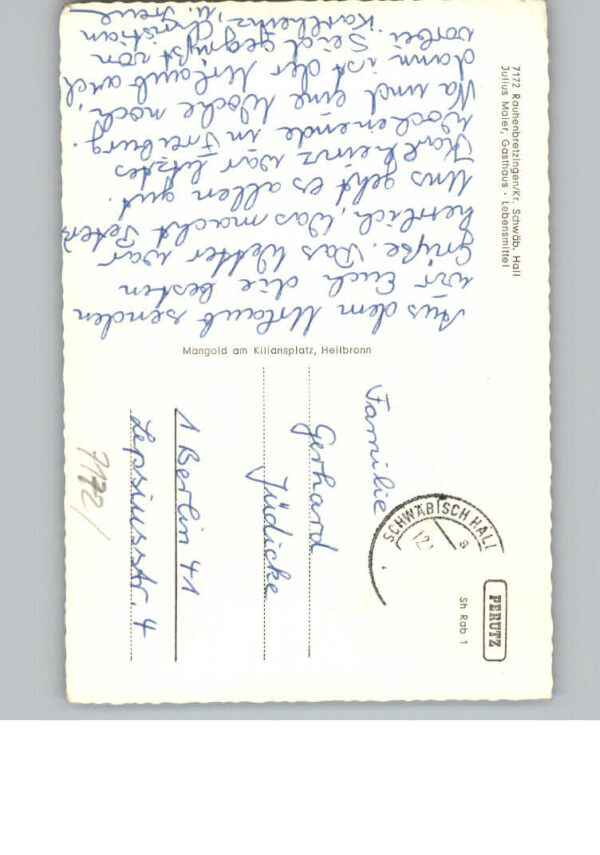 7172 Rauhenbretzingen/Kr. Schwäb. Hall
Julius Maier, Gasthaus · Lebensmittel
Aus dem Urlaub senden
wir Euch die besten
Grüße. Das Wetter war
herrlich, was macht Peter?
Uns geht es allen gut.
Karlheinz war letztes
Wochenende in Freiburg.
Na und eine Woche noch,
dann ist der Urlaub auch
vorbei. Seid gegrüßt von
Karlheinz, Christian
u. Irene
Mangold am Kiliansplatz, Heilbronn
PERUTZ
Sh Rab 1
SCHWÄBISCH HALL
12.
a
Familie
Gerhard
Jüdicke
1 Berlin 41
Lepsiusstr. 4
7172/